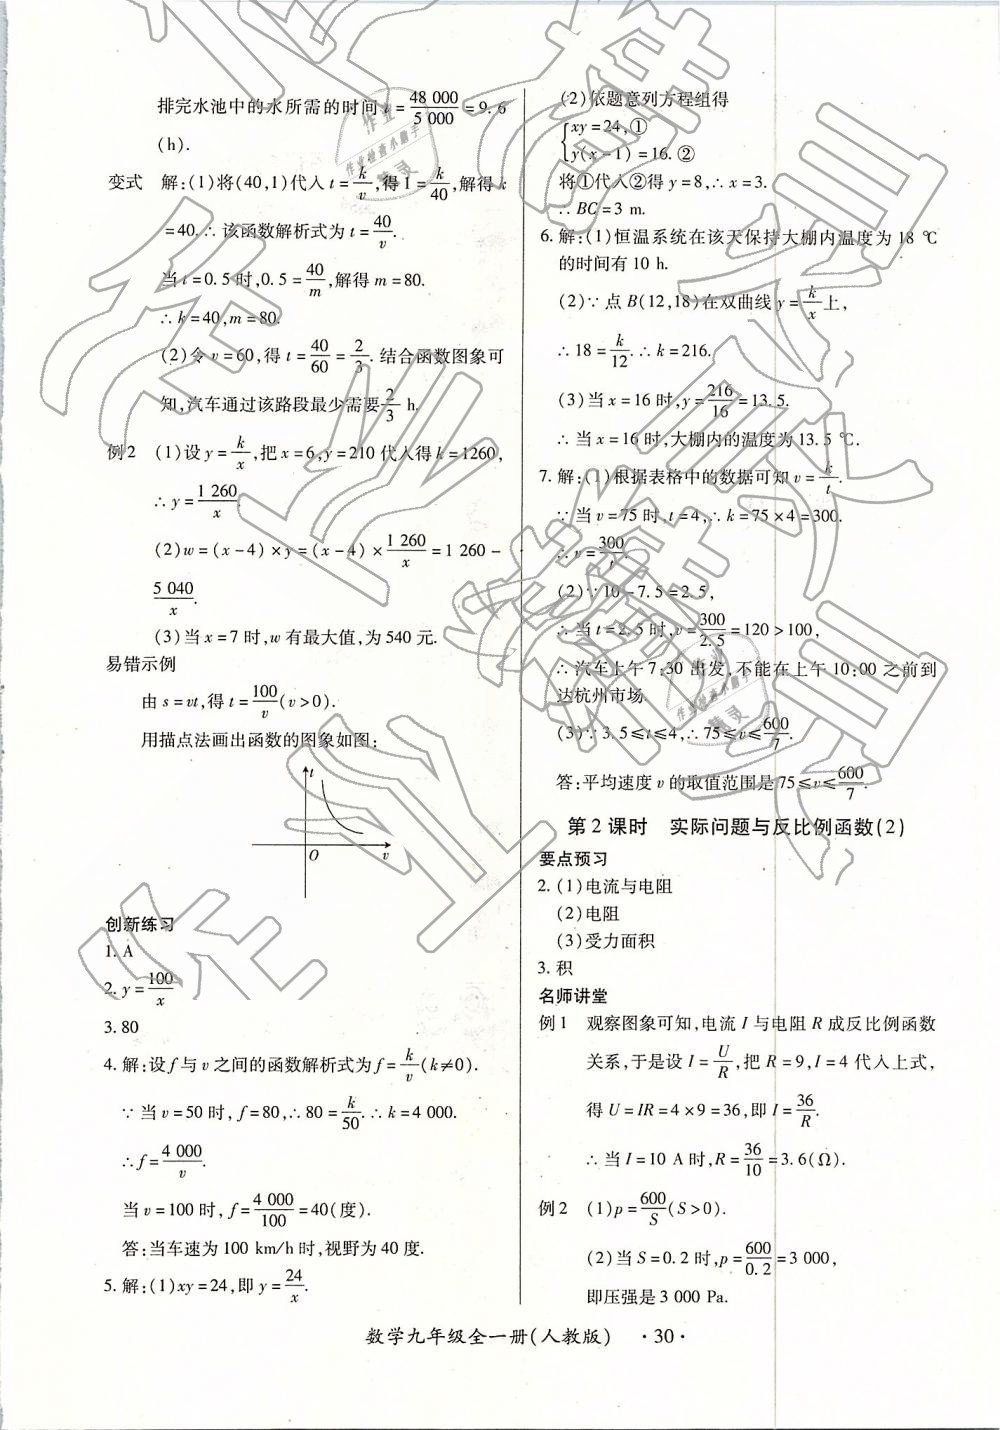 排完水池中的水所需的时间 t=48 000/5 000=9.6
(h).
变式 解:(1)将(40,1)代入 t=k/v,得1=k/40,解得 k
=40.∴该函数解析式为 t=40/v.
当 t=0.5 时,0.5=40/m,解得 m=80.
∴k=40,m=80.
(2)令 v=60,得 t=40/60=2/3.结合函数图象可
知,汽车通过该路段最少需要2/3 h.
例2 (1)设 y=k/x,把 x=6,y=210 代入得 k=1260,
∴y=1 260/x.
(2)w=(x-4)×y=(x-4)×1 260/x=1 260-
5 040/x.
(3)当 x=7 时,w 有最大值,为 540 元.
易错示例
由 s=vt,得 t=100/v(v>0).
用描点法画出函数的图象如图:
t
O
v
创新练习
1.A
2.y=100/x
3.80
4.解:设 f 与 v 之间的函数解析式为 f=k/v(k≠0).
∵当 v=50 时,f=80,∴80=k/50.∴k=4 000.
∴f=4 000/v.
当 v=100 时,f=4 000/100=40(度).
答:当车速为 100 km/h 时,视野为 40 度.
5.解:(1)xy=24,即 y=24/x.
(2)依题意列方程组得
{xy=24,①
y(x-1)=16.②
将①代入②得 y=8,∴x=3.
∴BC=3 m.
6.解:(1)恒温系统在该天保持大棚内温度为 18 ℃
的时间有 10 h.
(2)∵点 B(12,18)在双曲线 y=k/x上,
∴18=k/12.∴k=216.
(3)当 x=16 时,y=216/16=13.5.
∴当 x=16 时,大棚内的温度为 13.5 ℃.
7.解:(1)根据表格中的数据可知 v=k/t.
∵当 v=75 时,t=4,∴k=75×4=300.
∴v=300/t.
(2)∵10-7.5=2.5,
∴当 t=2.5 时,v=300/2.5=120>100,
∴汽车上午 7:30 出发,不能在上午 10:00 之前到
达杭州市场.
(3)∵3.5≤t≤4,∴75≤v≤600/7.
答:平均速度 v 的取值范围是 75≤v≤600/7.
第 2 课时 实际问题与反比例函数(2)
要点预习
2.(1)电流与电阻
(2)电阻
(3)受力面积
3.积
名师讲堂
例1 观察图象可知,电流 I 与电阻 R 成反比例函数
关系,于是设 I=U/R,把 R=9,I=4 代入上式,
得 U=IR=4×9=36,即 I=36/R.
∴当 I=10 A 时,R=36/10=3.6(Ω).
例2 (1)p=600/S(S>0).
(2)当 S=0.2 时,p=600/0.2=3 000,
即压强是 3 000 Pa.
数学九年级全一册(人教版) ·30·